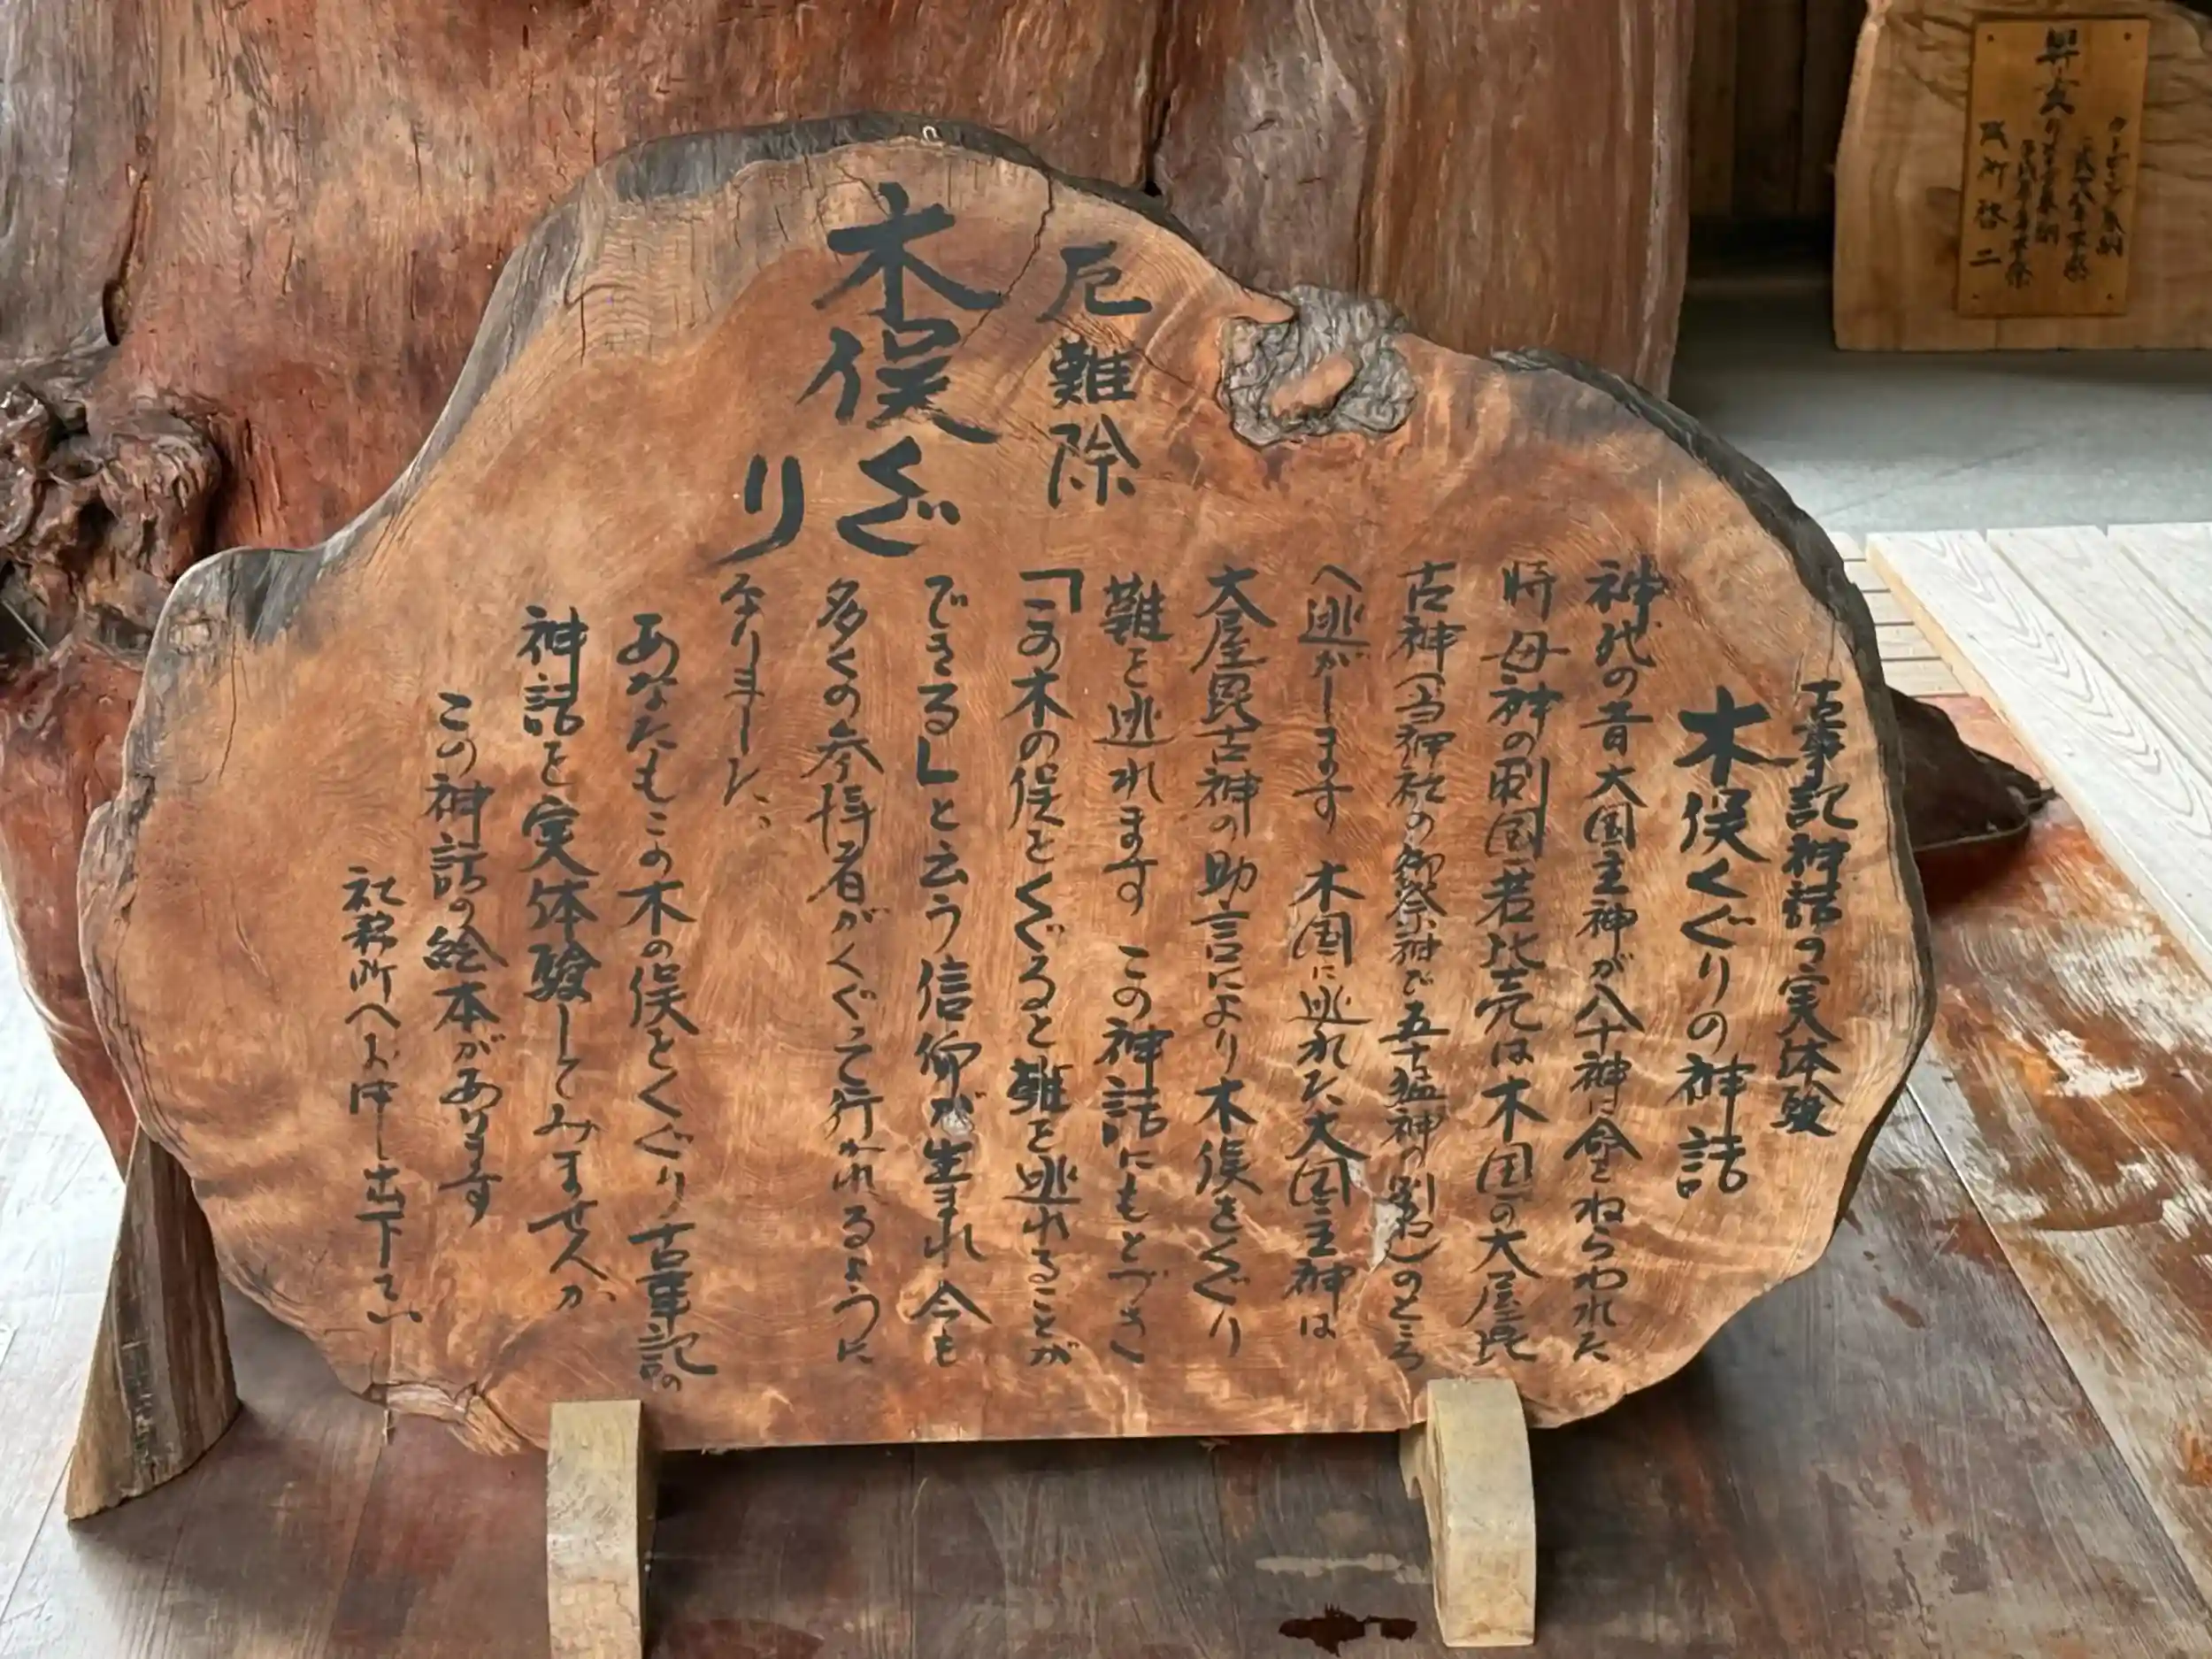 厄難除
木俣くぐり
古事記神話の実体験
木俣くぐりの神話
神代の昔大国主神が八十神に命をねらわれた
時母神の刺国若比売は木国の大屋毘
古神(当神社の御祭神で五十猛神の別名)のところ
へ逃がします 木国に逃れた大国主神は
大屋毘古神の助言により木俣をくぐり
難を逃れます この神話にもとづき
「この木の俣をくぐると難を逃れることが
できる」と云う信仰が生まれ 今も
多くの参拝者がくぐって行かれるように
なりました。
あなたもこの木の俣をくぐり古事記の
神話を実体験してみませんか
この神話の絵本があります
社務所へお申し出下さい